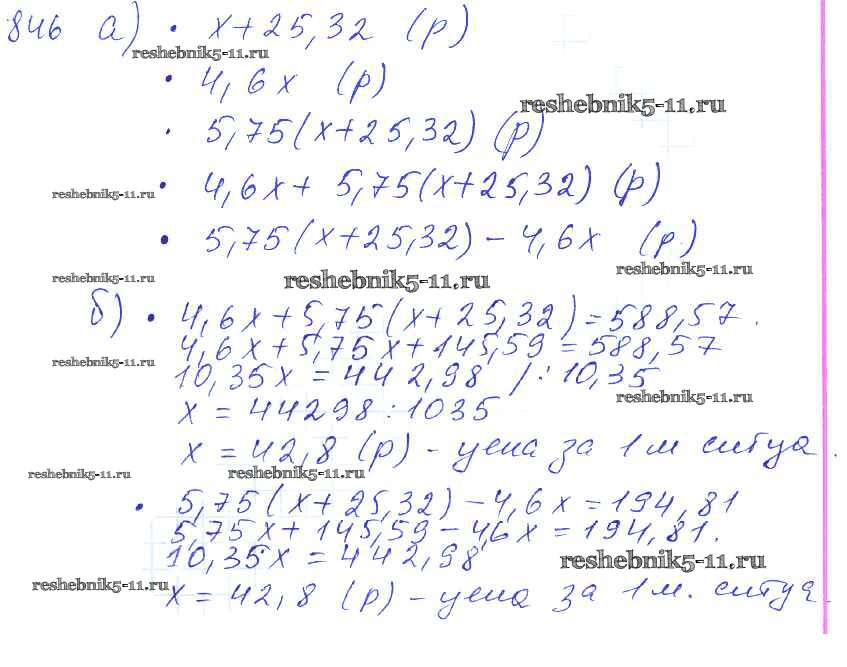 846 а) • x+25,32 (р)
reshebnik5-11.ru
• 4,6x (р)
reshebnik5-11.ru
• 5,75(x+25,32) (р)
reshebnik5-11.ru • 4,6x + 5,75(x+25,32) (р)
• 5,75(x+25,32) - 4,6x (р)
reshebnik5-11.ru reshebnik5-11.ru reshebnik5-11.ru
б) • 4,6x+5,75(x+25,32)=588,57.
4,6x+5,75x+145,59=588,57
reshebnik5-11.ru
10,35x = 442,98 /:10,35
reshebnik5-11.ru
x = 44298:1035
x = 42,8 (р) - цена за 1м ситца.
reshebnik5-11.ru reshebnik5-11.ru
• 5,75(x+25,32)-4,6x=194,81
5,75x+145,59-4,6x=194,81.
10,35x = 442,98
reshebnik5-11.ru
reshebnik5-11.ru
x = 42,8 (р) - цена за 1м. ситца.